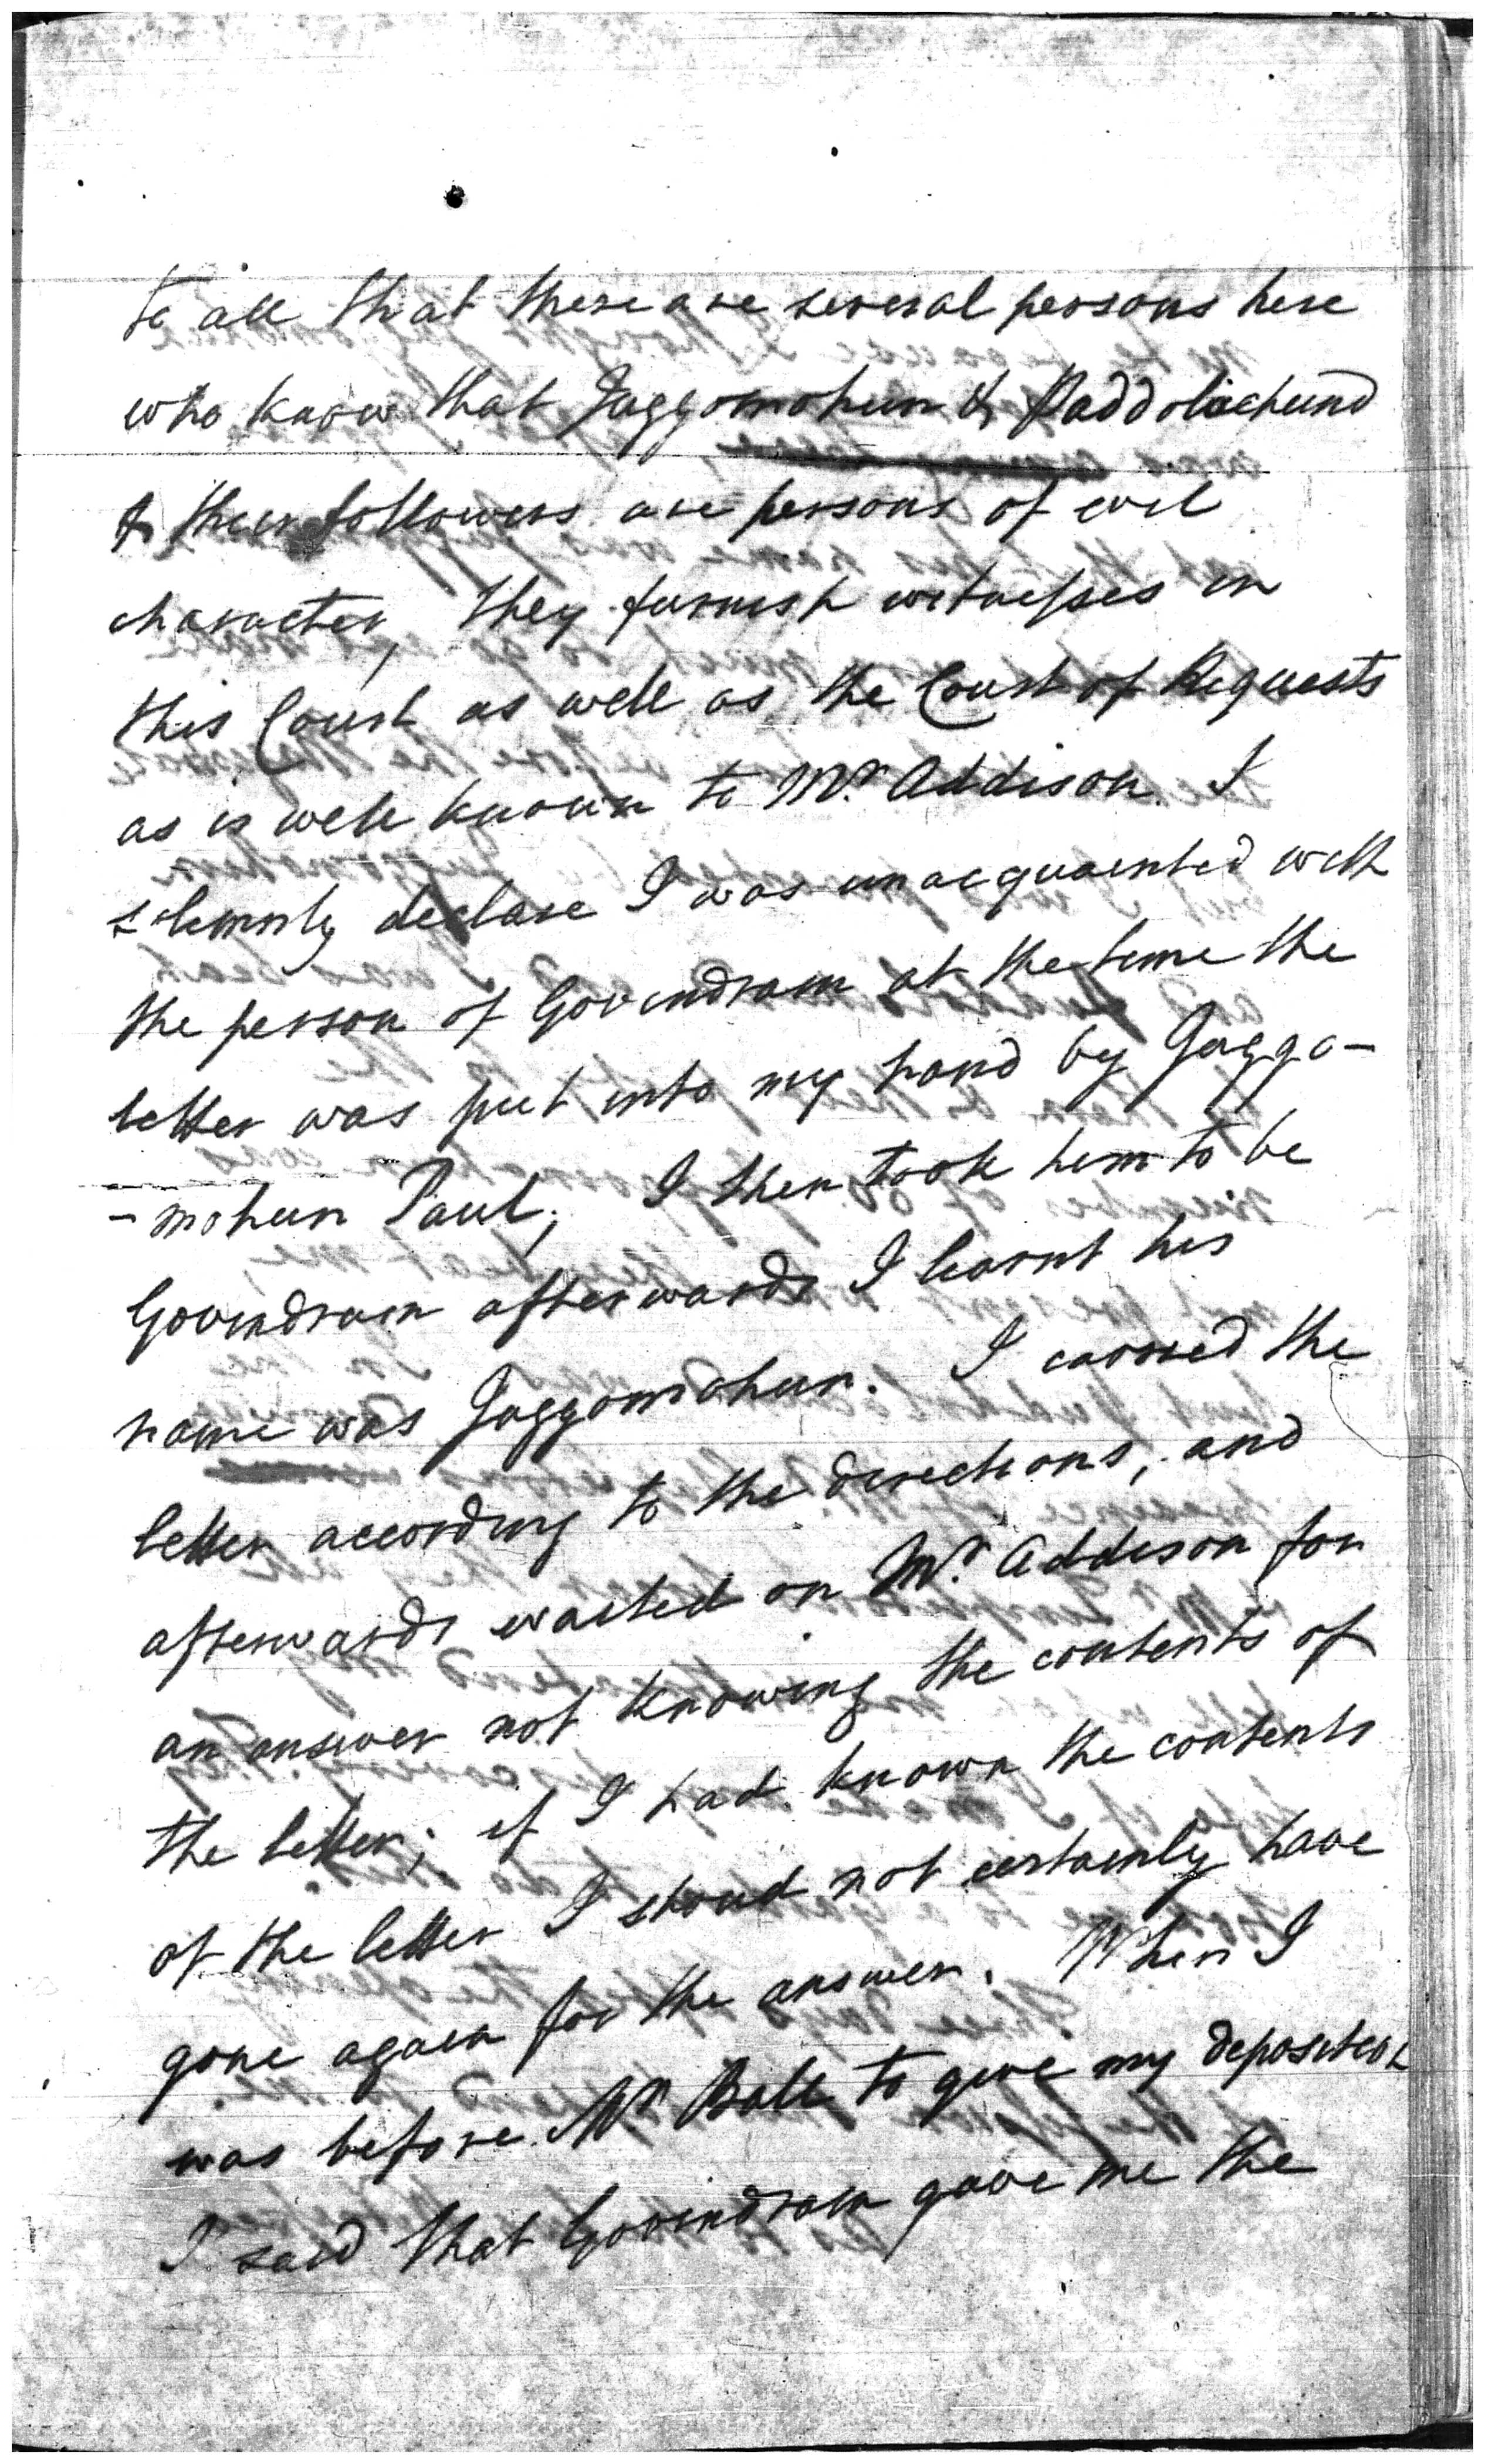 to all that there are several persons here
who know that Jaggomohun & Paddolochund
& their followers are persons of evil
character, they furnish witnesses in
this Court as well as the Court of Requests
as is well known to Mr. Addison. I
solemnly declare I was unacquainted with
the person of Govindram at the time the
letter was put into my hand by Jaggo-
-mohun Paul; I then took him to be
Govindram afterwards I learnt his
name was Jaggomohun. I carried the
letter according to the directions, and
afterwards waited on Mr. Addison for
an answer not knowing the contents of
the letter; if I had known the contents
of the letter I shoud not certainly have
gone again for the answer. When I
was before Mr Ball to give my deposition
I said that Govindram gave me the